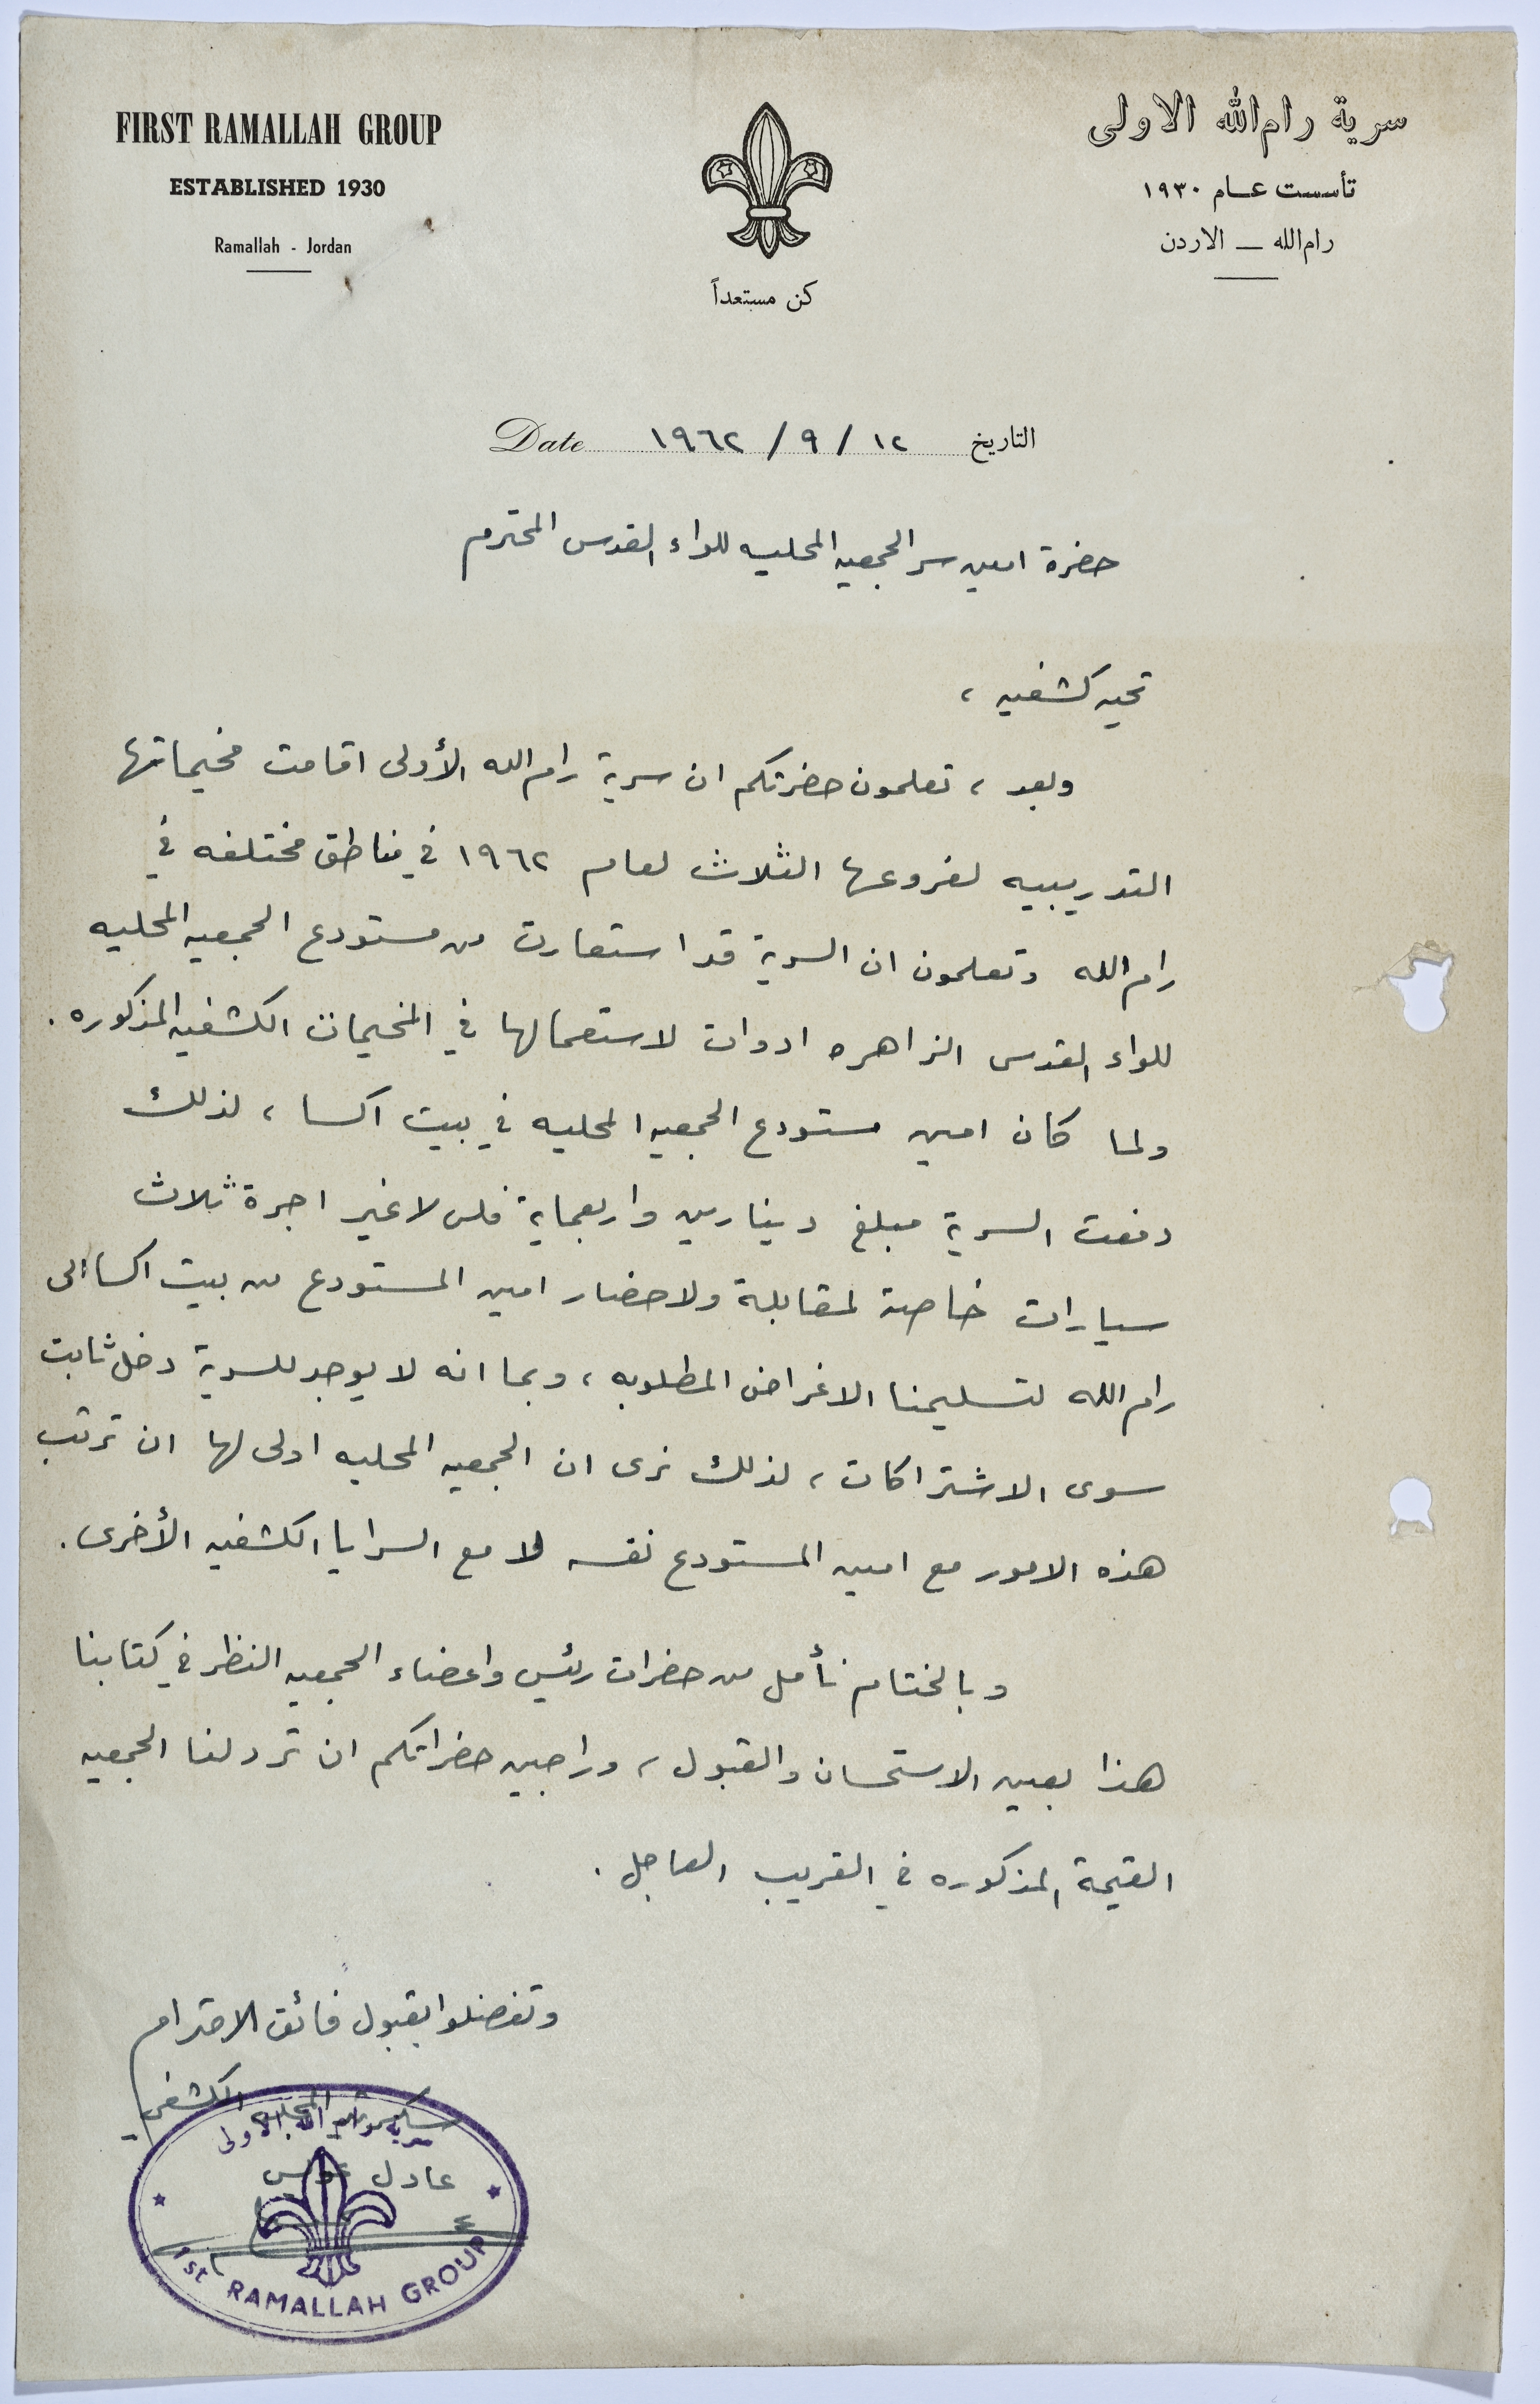 FIRST RAMALLAH GROUP
ESTABLISHED 1930
Ramallah - Jordan
سرية رام الله الاولى
تأسست عام ١٩٣٠
رام الله — الاردن
كن مستعداً
التاريخ ١٢ / ٩ / ١٩٦٢ Date
حضرة امين سر الجمعيه المحليه للواء القدس المحترم
تحيه كشفيه ،
وبعد ، تعلمون حضرتكم ان سرية رام الله الأولى اقامت مخيماتها
التدريبيه لفروعها الثلاث لعام ١٩٦٢ في مناطق مختلفه في
رام الله وتعلمون ان السرية قد استعارت من مستودع الجمعيه المحليه
للواء القدس الزاهره ادوات لاستعمالها في المخيمات الكشفيه المذكوره .
ولما كان امين مستودع الجمعيه المحليه في بيت اكسا ، لذلك
دفعت السرية مبلغ دينارين واربعماية فلس لا غير اجرة ثلاث
سيارات خاصة لمقابلة ولاحضار امين المستودع من بيت اكسا الى
رام الله لتسليمنا الاغراض المطلوبه ، وبما انه لا يوجد للسرية دخل ثابت
سوى الاشتراكات ، لذلك نرى ان الجمعيه المحليه اولى لها ان ترتب
هذه الامور مع امين المستودع نفسه لا مع السرايا الكشفيه الأخرى .
وبالختام نأمل من حضرات رئيس واعضاء الجمعيه النظر في كتابنا
هذا بعين الاستحسان والقبول ، وراجين حضراتكم ان ترد لنا الجمعيه
القيمة المذكوره في القريب العاجل .
وتفضلوا بقبول فائق الاحترام
الكشفي
سرية رام الله الاولى
عادل
1st RAMALLAH GROUP